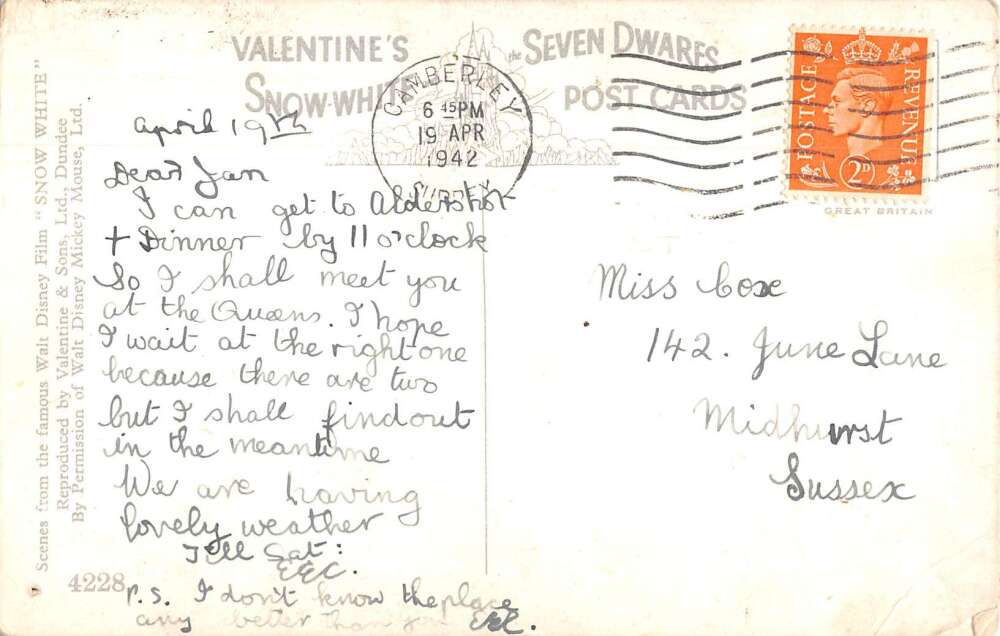 VALENTINE'S
SNOW-WHITE
the SEVEN DWARFS
POST CARDS
CAMBERLEY
6 45 PM
19 APR
1942
SURREY
POSTAGE
REVENUE
2D
GREAT BRITAIN
Scenes from the famous Walt Disney Film "SNOW WHITE"
Reproduced by Valentine & Sons, Ltd., Dundee
By Permission of Walt Disney Mickey Mouse, Ltd.
April 19th
Dear Jan
I can get to Aldershot
+ Dinner by 11 o'clock
So I shall meet you
at the Queens. I hope
I wait at the right one
because there are two
but I shall find out
in the meantime
We are having
lovely weather
Till Sat:
EEC.
P.S. I don't know the place
any better than you EEC.
4228
Miss Cox
142. June Lane
Midhurst
Sussex